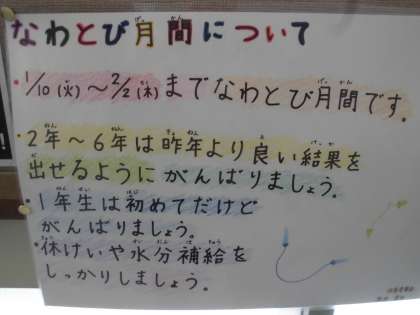 なわとび月間について
・1/10(火)～2/2(木)までなわとび月間です。
・2年～6年は昨年より良い結果を
出せるようにがんばりましょう。
・1年生は初めてだけど
がんばりましょう。
・休けいや水分補給を
しっかりしましょう。